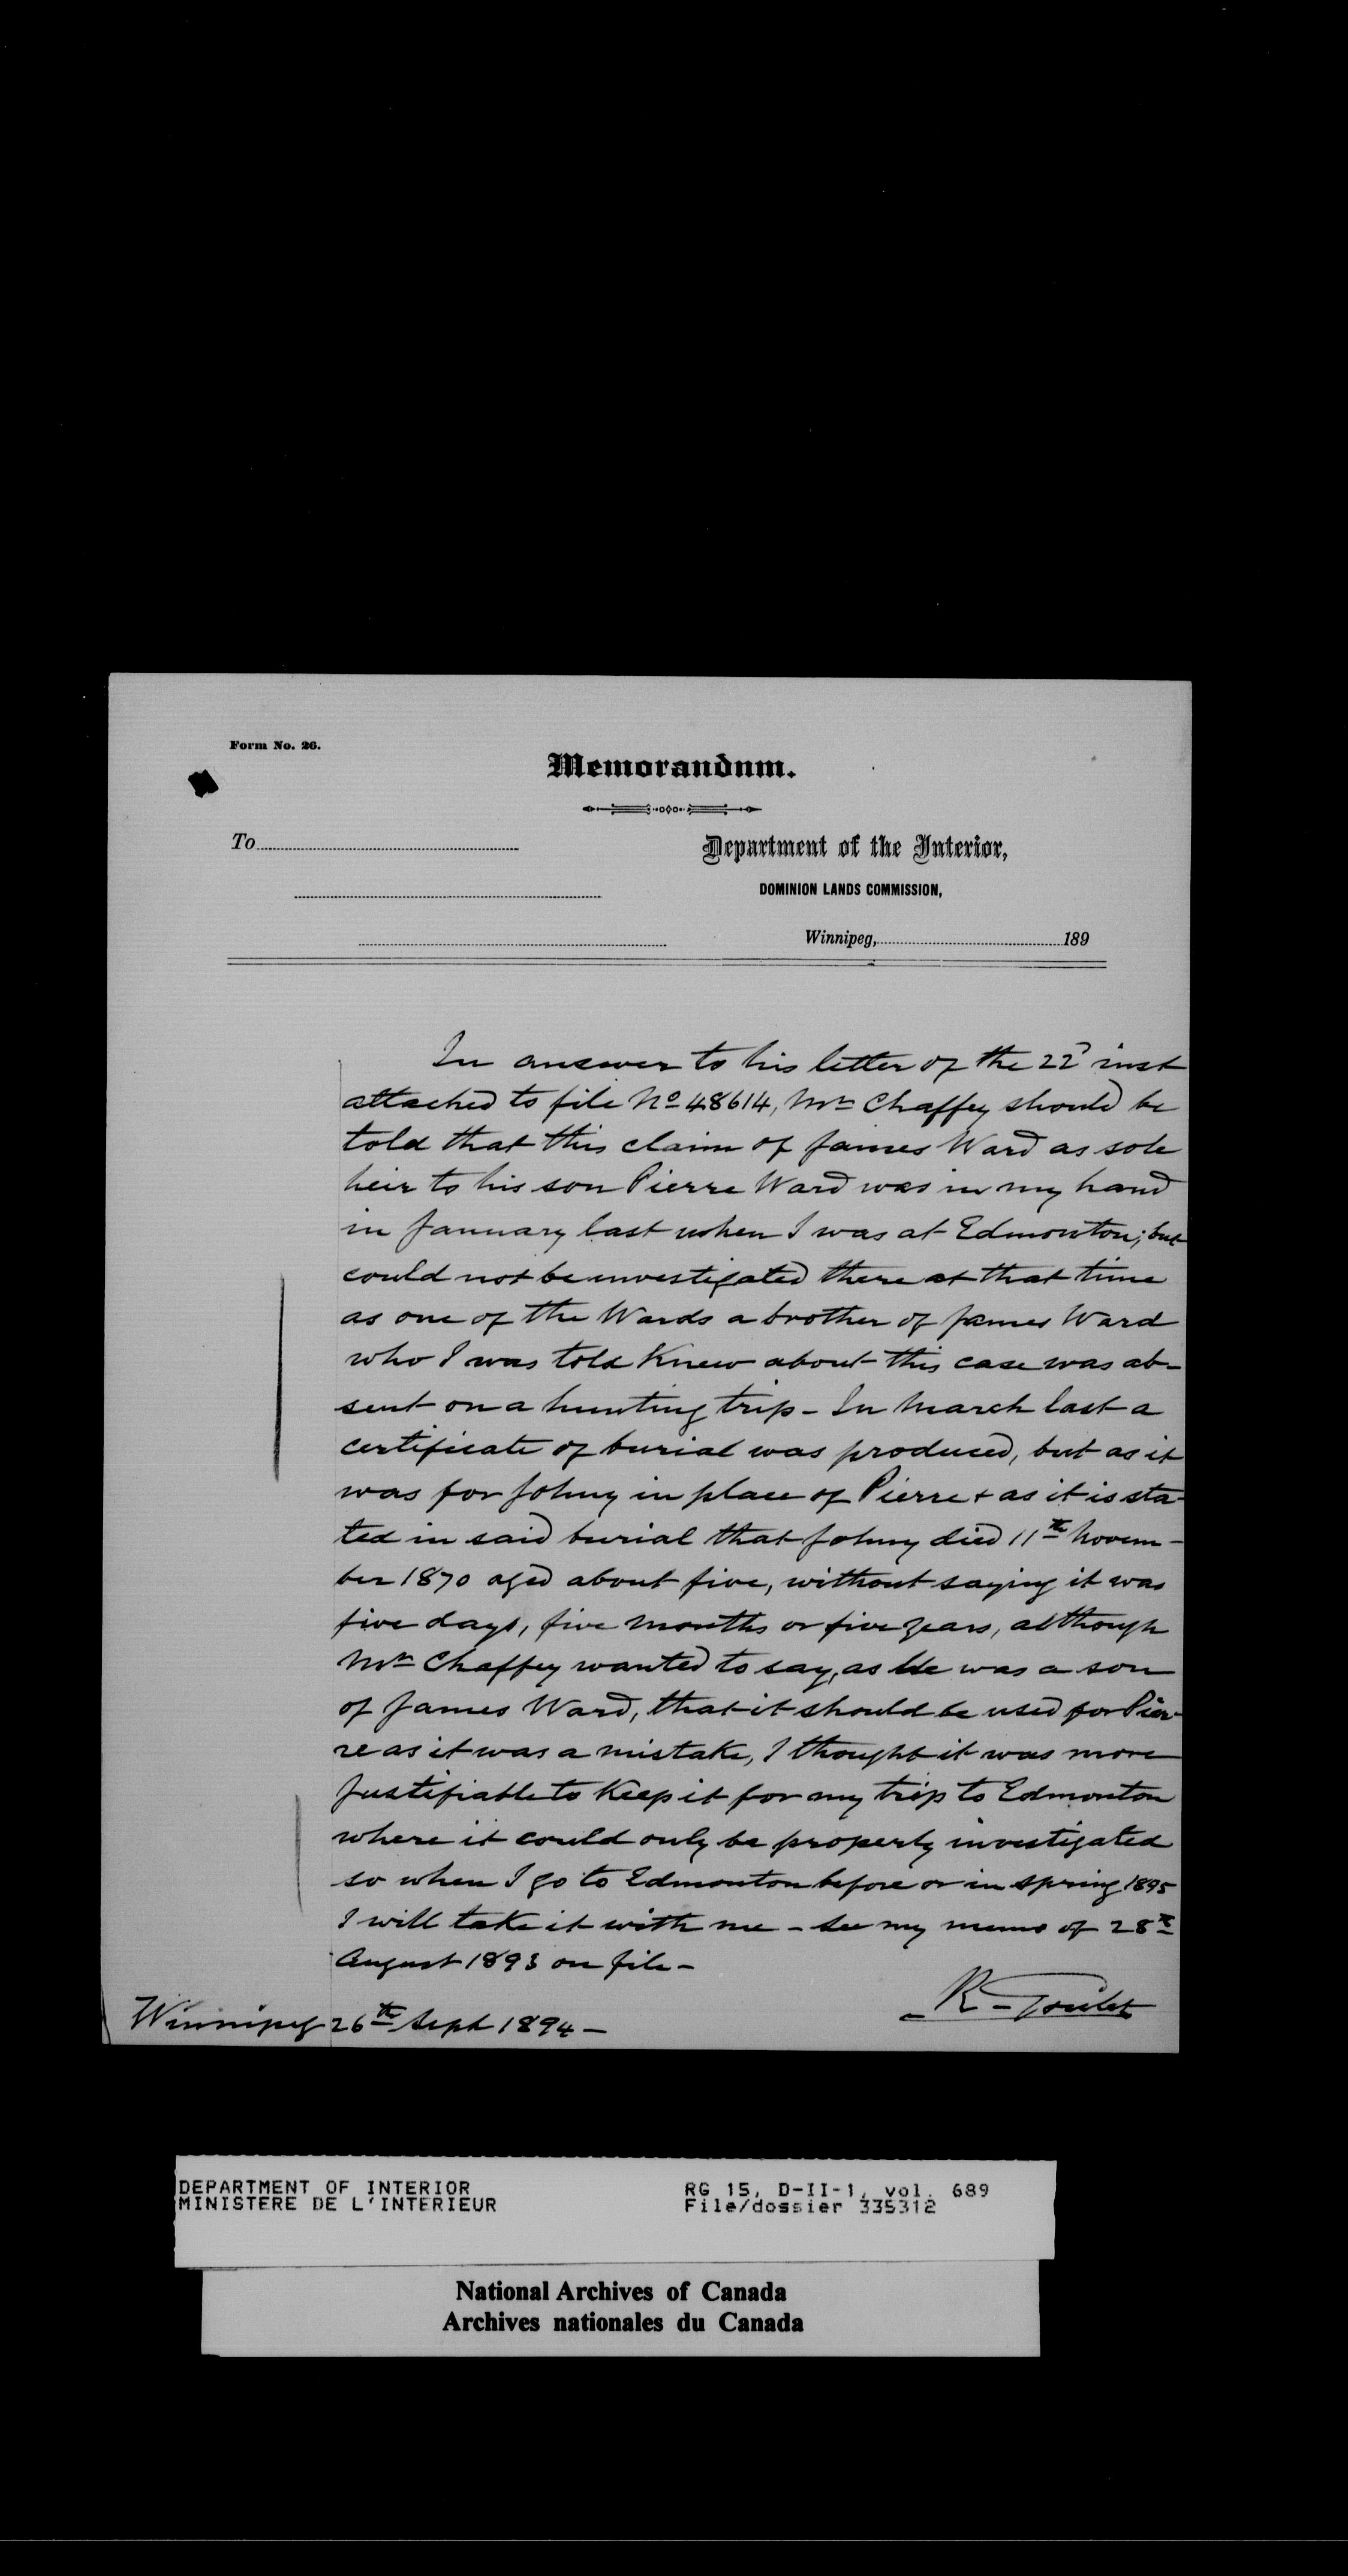 Form No. 26.
Memorandum.
To
Department of the Interior,
DOMINION LANDS COMMISSION,
Winnipeg, 189
In answer to his letter of the 22d inst
attached to file No 48614, Mr Chaffey should be
told that this claim of James Ward as sole
heir to his son Pierre Ward was in my hand
in January last when I was at Edmonton; but
could not be investigated there at that time
as one of the Wards a brother of James Ward
who I was told Knew about this case was ab-
sent on a hunting trip - In March last a
certificate of burial was produced, but as it
was for Johny in place of Pierre + as it is sta-
ted in said burial that Johny died 11th Novem-
ber 1870 aged about five, without saying it was
five days, five months or five years, although
Mr Chaffey wanted to say, as He was a son
of James Ward, that it should be used for Pier-
re as it was a mistake, I thought it was more
Justifiable to Keep it for my trip to Edmonton
where it could only be properly investigated
so when I go to Edmonton before or in spring 1895
I will take it with me - See my memo of 28th
August 1893 on file -
R - Goulet
Winnipeg 26th Sept 1894 -
DEPARTMENT OF INTERIOR
MINISTERE DE L'INTERIEUR
RG 15, D-II-1, vol. 689
File/dossier 335312
National Archives of Canada
Archives nationales du Canada